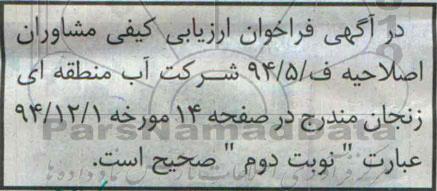 در آگهی فراخوان ارزیابی کیفی مشاوران
اصلاحیه ف/۹۴/۵ شرکت آب منطقه ای
زنجان مندرج در صفحه ۱۴ مورخه ۹۴/۱۲/۱
ParsNamadData
عبارت " نوبت دوم " صحیح است.